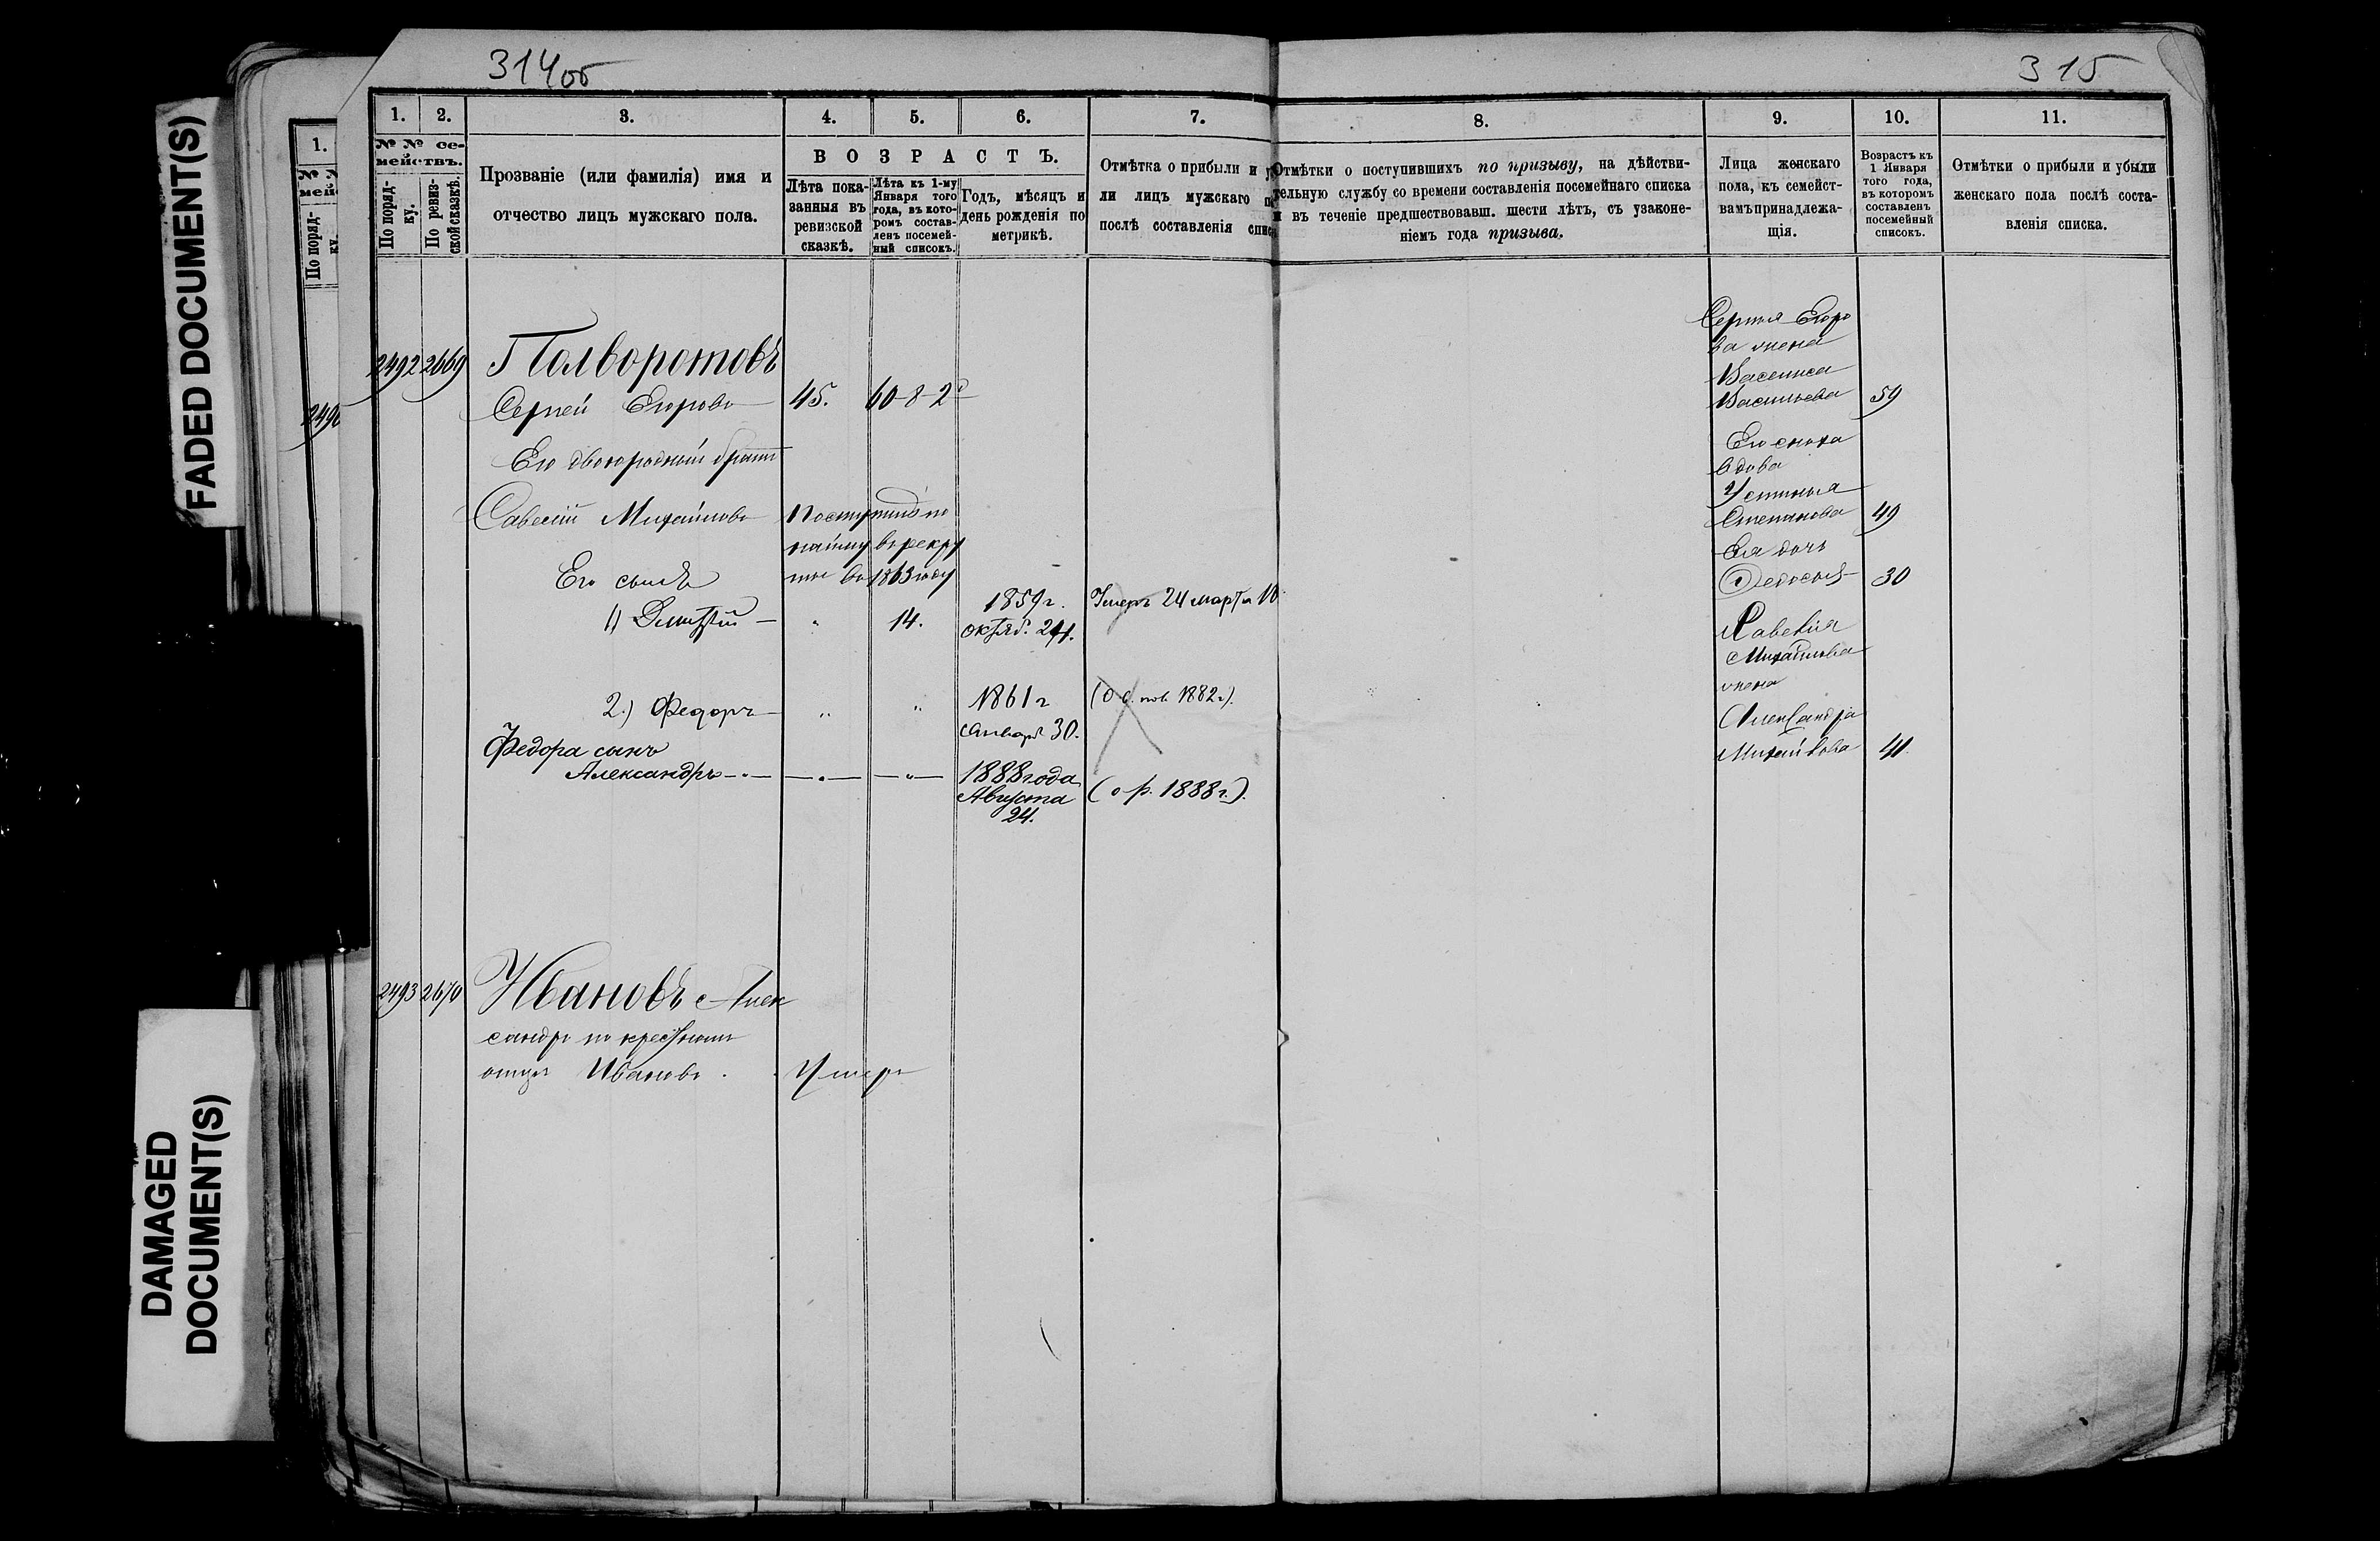 FADED DOCUMENT(S)
DAMAGED
DOCUMENT(S)
314об
315
1.
По поряд-
2490
1. 2. 3. 4. 5. 6. 7. 8. 9. 10. 11.
№ № се-
мействъ.
По поряд-
ку.
По ревиз-
ской сказкѣ.
Прозваніе (или фамилія) имя и
отчество лицъ мужскаго пола.
ВОЗРАСТЪ.
Лѣта пока-
занныя въ
ревизской
сказкѣ.
Лѣта къ 1-му
Января того
года, въ кото-
ромъ состав-
ленъ посемей-
ный списокъ.
Годъ, мѣсяцъ и
день рожденія по
метрикѣ.
Отмѣтка о прибыли и
ли лицъ мужскаго
послѣ составленія
Отмѣтки о поступившихъ по призыву, на дѣйстви-
тельную службу со времени составленія посемейнаго списка
и въ теченіе предшествовавш. шести лѣтъ, съ узаконе-
ніемъ года призыва.
Лица женскаго
пола, къ семейст-
вамъ принадлежа-
щія.
Возрастъ къ
1 Января
того года,
въ которомъ
составленъ
посемейный
списокъ.
Отмѣтки о прибыли и убыли
женскаго пола послѣ соста-
вленія списка.
2492 2669 Полворотовъ
Сергей Егоровъ 45. 60-8-2
Его двоюродный братъ
Савелій Михайловъ Поступилъ по
найму въ рекру
ты въ 1863 году
Его сынъ
1) Дмитрій — " 14. 1859 г. октяб. 24. Умеръ 24 марта 18
2.) Федоръ — " " 1861 г Январ. 30. 1882 г).
Федора сынъ
Александръ —"— —"— —"— 1888 года
Августа
24.
(о р. 1888 г.).
Сергея Егоро
ва жена
Васильева 59
Его сноха
вдова
Устинья
Степанова 49
Ея дочь
Федосья 30
Савелія
Михайлова
жена
Александра
Михайлова 41.
2493 2670 Ивановъ Алек
сандръ по крестному
отцу Ивановъ. Умеръ